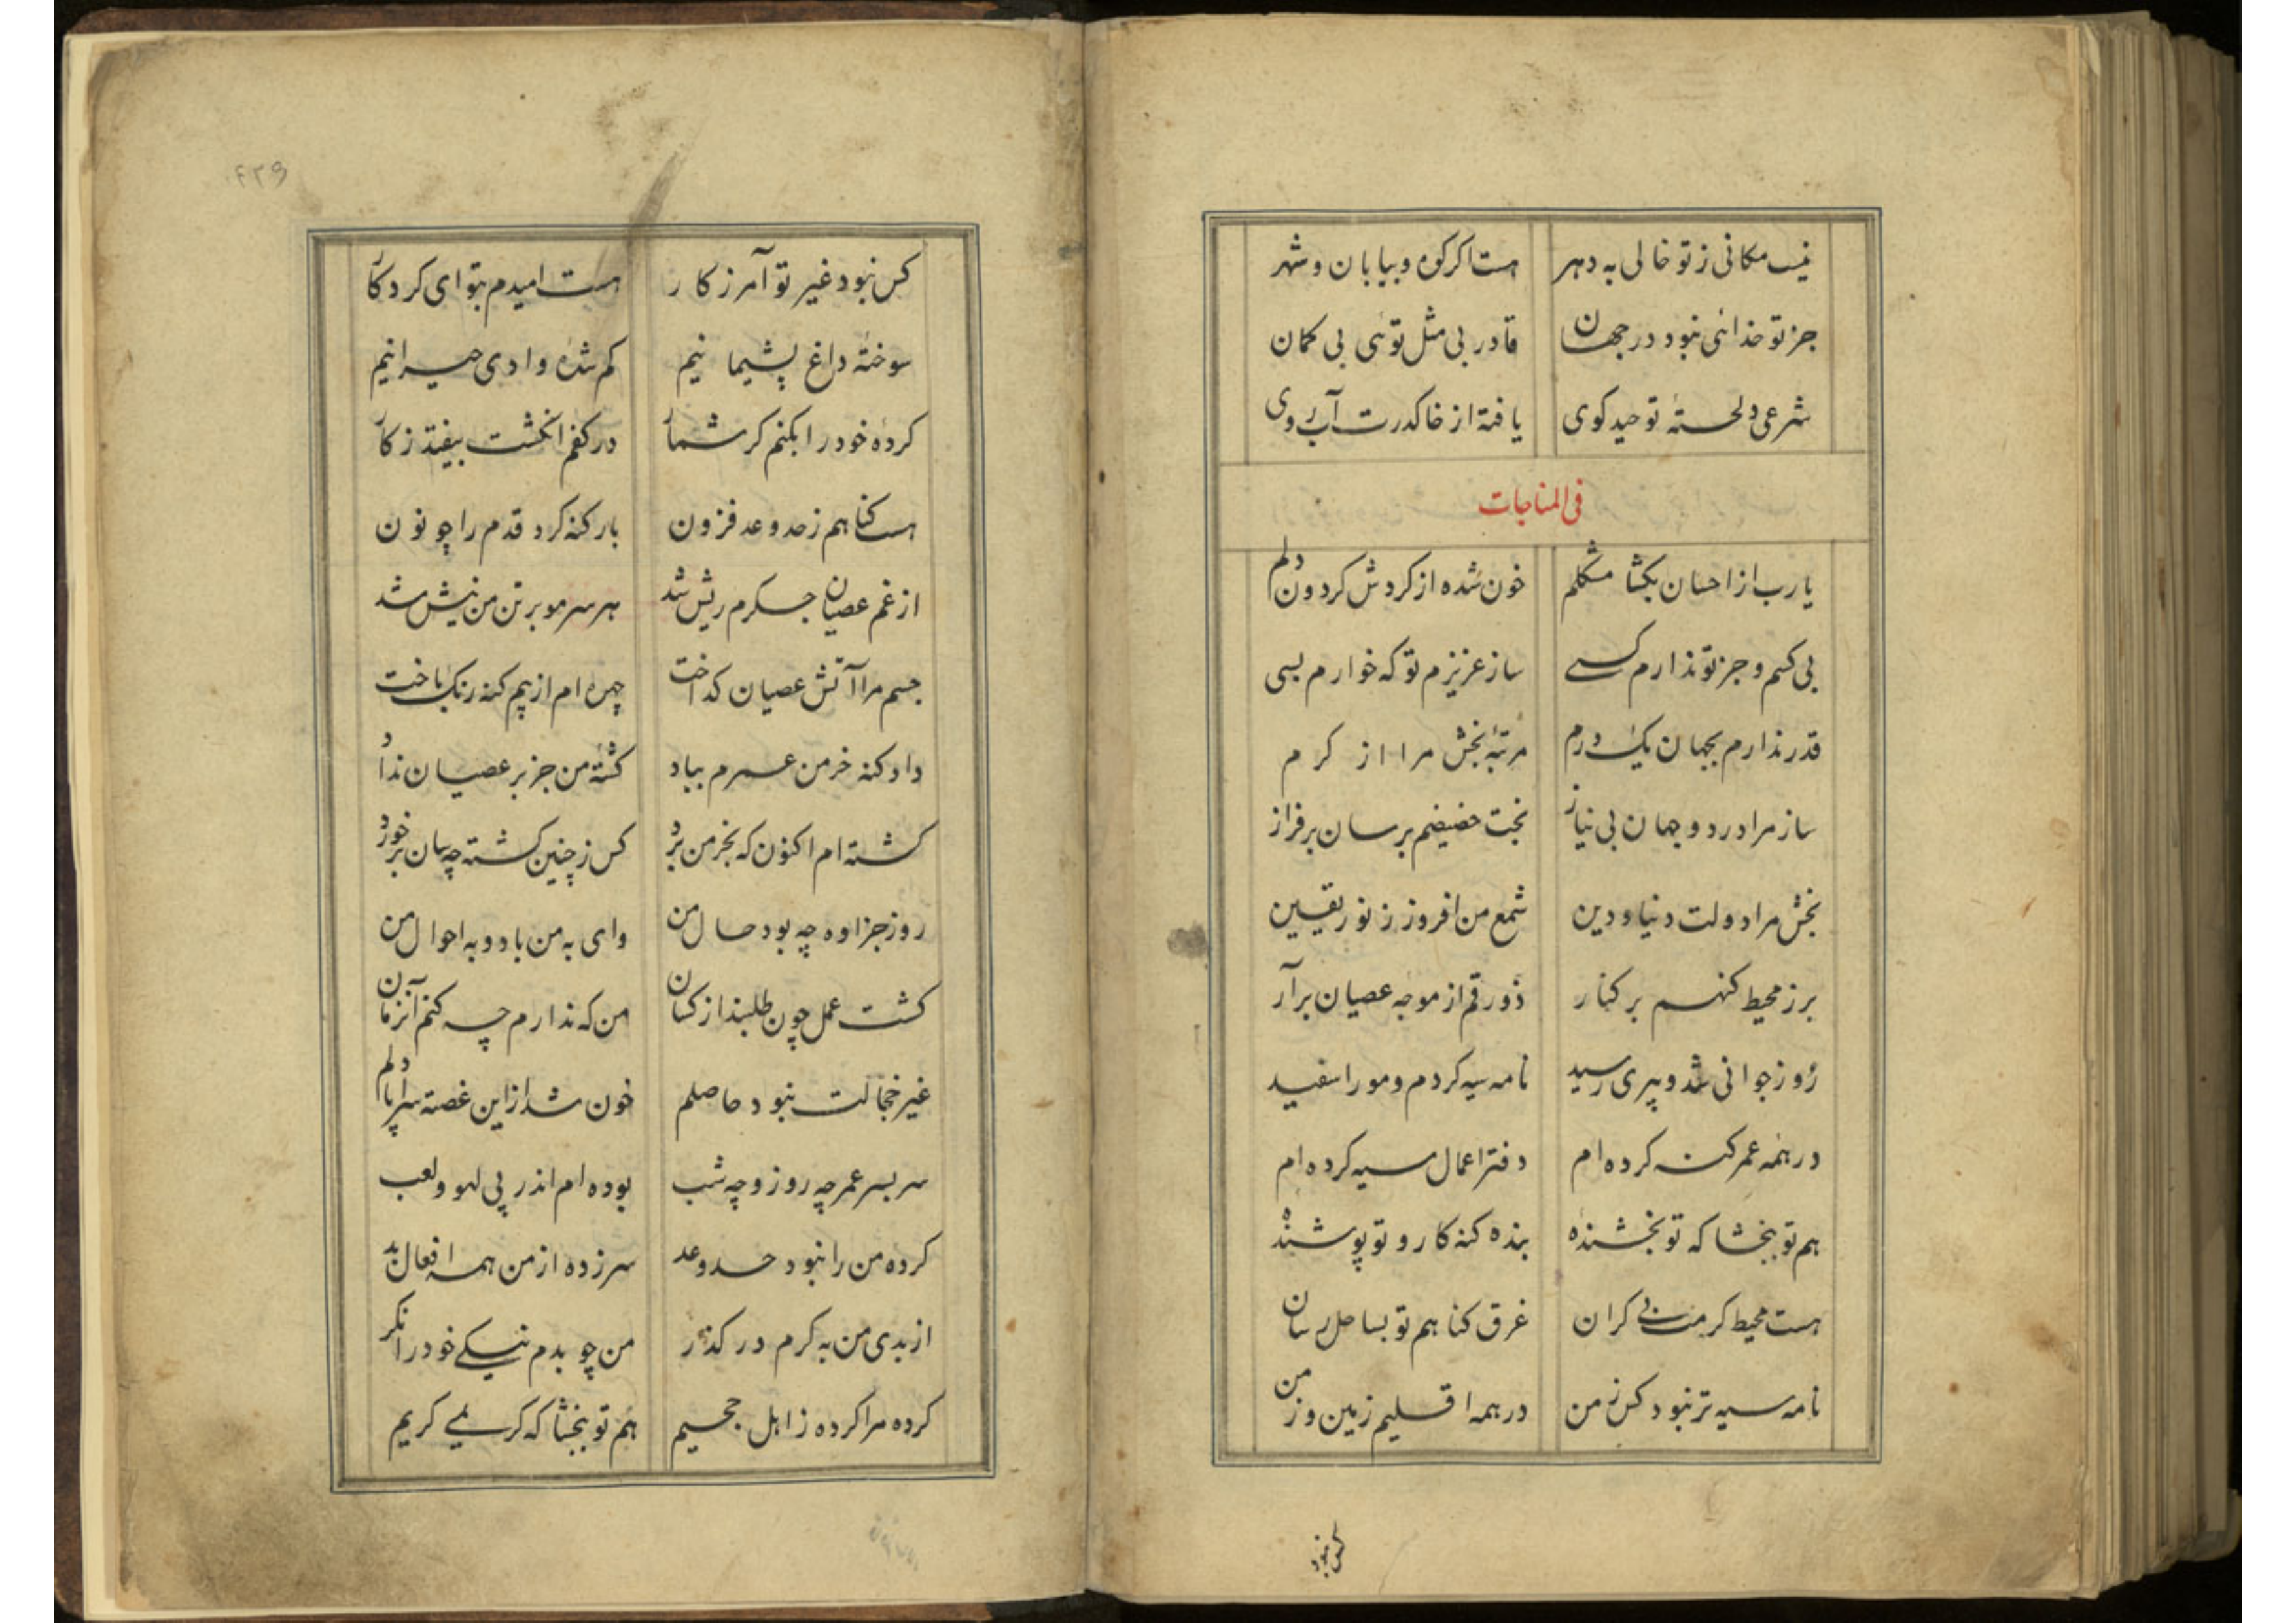 نیست مکانی ز تو خالی به دهر هست اکر کوه و بیابان و شهر
جز تو خدائی نبود در جهان قادر بی مثل توئی بی کمان
شرعی دلخستهٔ توحید کوی یافته از خاک درت آب روی
فی المناجات
یارب از احسان بکشا مشکلم خون شده از کردش کردون دلم
بی کسم و جز تو ندارم کسے ساز عزیزم تو که خوارم بسی
قدر ندارم بجهان یک درم مرتبهٔ بخش مرا از کرم
ساز مرا در دو جهان بی نیاز بخت حضیضم برسان بر فراز
بخش مرا دولت دنیا و دین شمع من افروز ز نور یقین
بر ز محیط کنهم بر کنار زورقم از موجه عصیان برآر
روز جوانی شد و پیری رسید نامه سیه کردم و مو را سفید
در همه عمر کنه کرده ام دفتر اعمال سیه کرده ام
هم تو ببخشا که تو بخشنده بنده کنه کار و تو پوشنده
هست محیط کرمت بے کران غرق کناهم تو بساحل رسان
نامه سیه تر نبود کس ز من در همه اقلیم زمین و زمن
کس نبود
۴۲۹
کس نبود غیر تو آمرزکار هست امیدم بتو ای کردکار
سوختهٔ داغ پشیمانیم کم شدهٔ وادی حیرانیم
کردهٔ خود را بکنم کر شمار در کفم انکشت بیفتد ز کار
هست کناهم ز حد و عد فزون بار کنه کرد قدم را چو نون
از غم عصیان جکرم ریش شد هر سر مو بر تن من نیش شد
جسم مرا آتش عصیان کداخت چهره ام از بیم کنه رنک باخت
داد کنه خرمن عمرم بباد کشتهٔ من جز بر عصیان نداد
کشته ام اکنون که بخرمن برد کس ز چنین کشته چه سان بر خورد
روز جزا وه چه بود حال من وای به من باد و به احوال من
کشت عمل چون طلبند از کسان من که ندارم چه کنم آنزمان
غیر خجالت نبود حاصلم خون شد از این غصه سراپا دلم
سر بسر عمر چه روز و چه شب بوده ام اندر پی لهو و لعب
کرده من را نبود حد و عد سر زده از من همه افعال بد
از بدی من به کرم در کذر من چو بدم نیکے خود را نکر
کرده مرا کرده ز اهل جحیم هم تو ببخشا که کریمے کریم